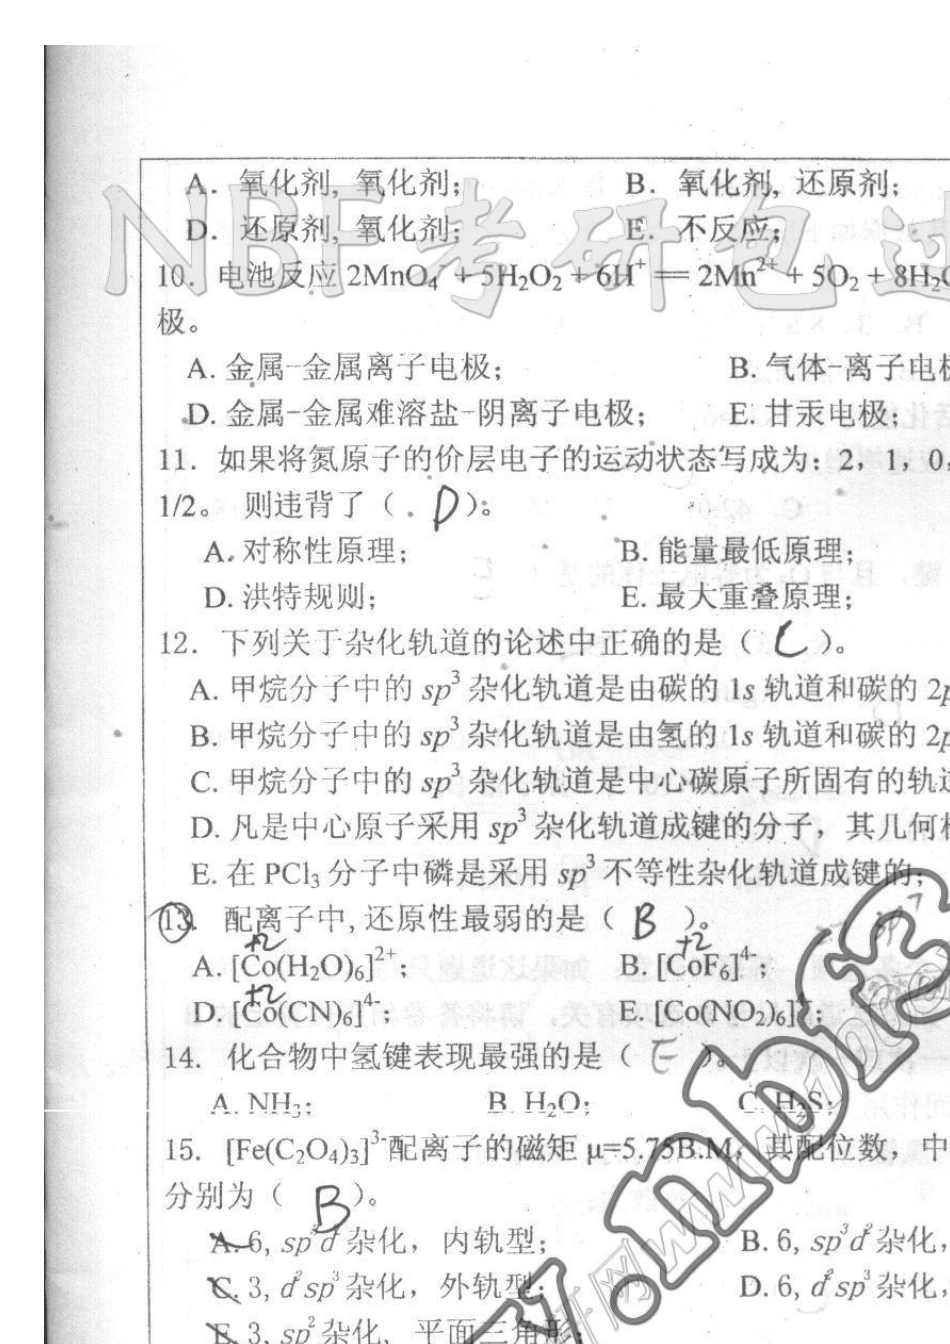 A. 氧化剂, 氧化剂; B. 氧化剂, 还原剂;
D. 还原剂, 氧化剂; E. 不反应;
10. 电池反应 2MnO₄⁻ + 5H₂O₂ + 6H⁺ == 2Mn²⁺ + 5O₂ + 8H₂O
极。
A. 金属-金属离子电极; B. 气体-离子电极
D. 金属-金属难溶盐-阴离子电极; E. 甘汞电极;
11. 如果将氮原子的价层电子的运动状态写成为: 2, 1, 0,
1/2。 则违背了 ( D )。
A. 对称性原理; B. 能量最低原理;
D. 洪特规则; E. 最大重叠原理;
12. 下列关于杂化轨道的论述中正确的是 ( C )。
A. 甲烷分子中的 sp³ 杂化轨道是由碳的 1s 轨道和碳的 2p
B. 甲烷分子中的 sp³ 杂化轨道是由氢的 1s 轨道和碳的 2p
C. 甲烷分子中的 sp³ 杂化轨道是中心碳原子所固有的轨道
D. 凡是中心原子采用 sp³ 杂化轨道成键的分子, 其几何构
E. 在 PCl₃ 分子中磷是采用 sp³ 不等性杂化轨道成键的;
13. 配离子中, 还原性最弱的是 ( B )。
+2 +2
A. [Co(H₂O)₆]²⁺; B. [CoF₆]⁴⁻;
+2
D. [Co(CN)₆]⁴⁻; E. [Co(NO₂)₆]
14. 化合物中氢键表现最强的是 ( E )。
A. NH₃; B. H₂O; C. H₂S;
15. [Fe(C₂O₄)₃]³⁻配离子的磁矩 μ=5.75B.M, 其配位数, 中
分别为 ( B )。
A. 6, sp³d² 杂化, 内轨型; B. 6, sp³d² 杂化,
C. 3, d²sp³ 杂化, 外轨型; D. 6, d²sp³ 杂化,
E. 3, sp² 杂化, 平面三角形;
NBF考研包过